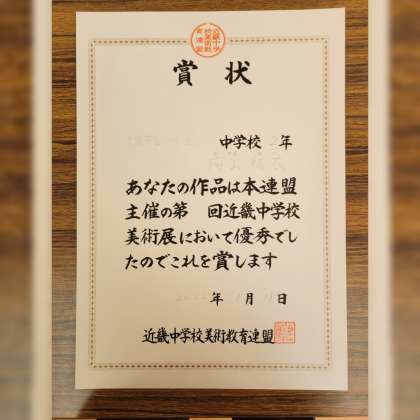 賞状
中学校 2年
あなたの作品は本連盟
主催の第 回近畿中学校
美術展において優秀でし
たのでこれを賞します
年 月 日
近畿中学校美術教育連盟